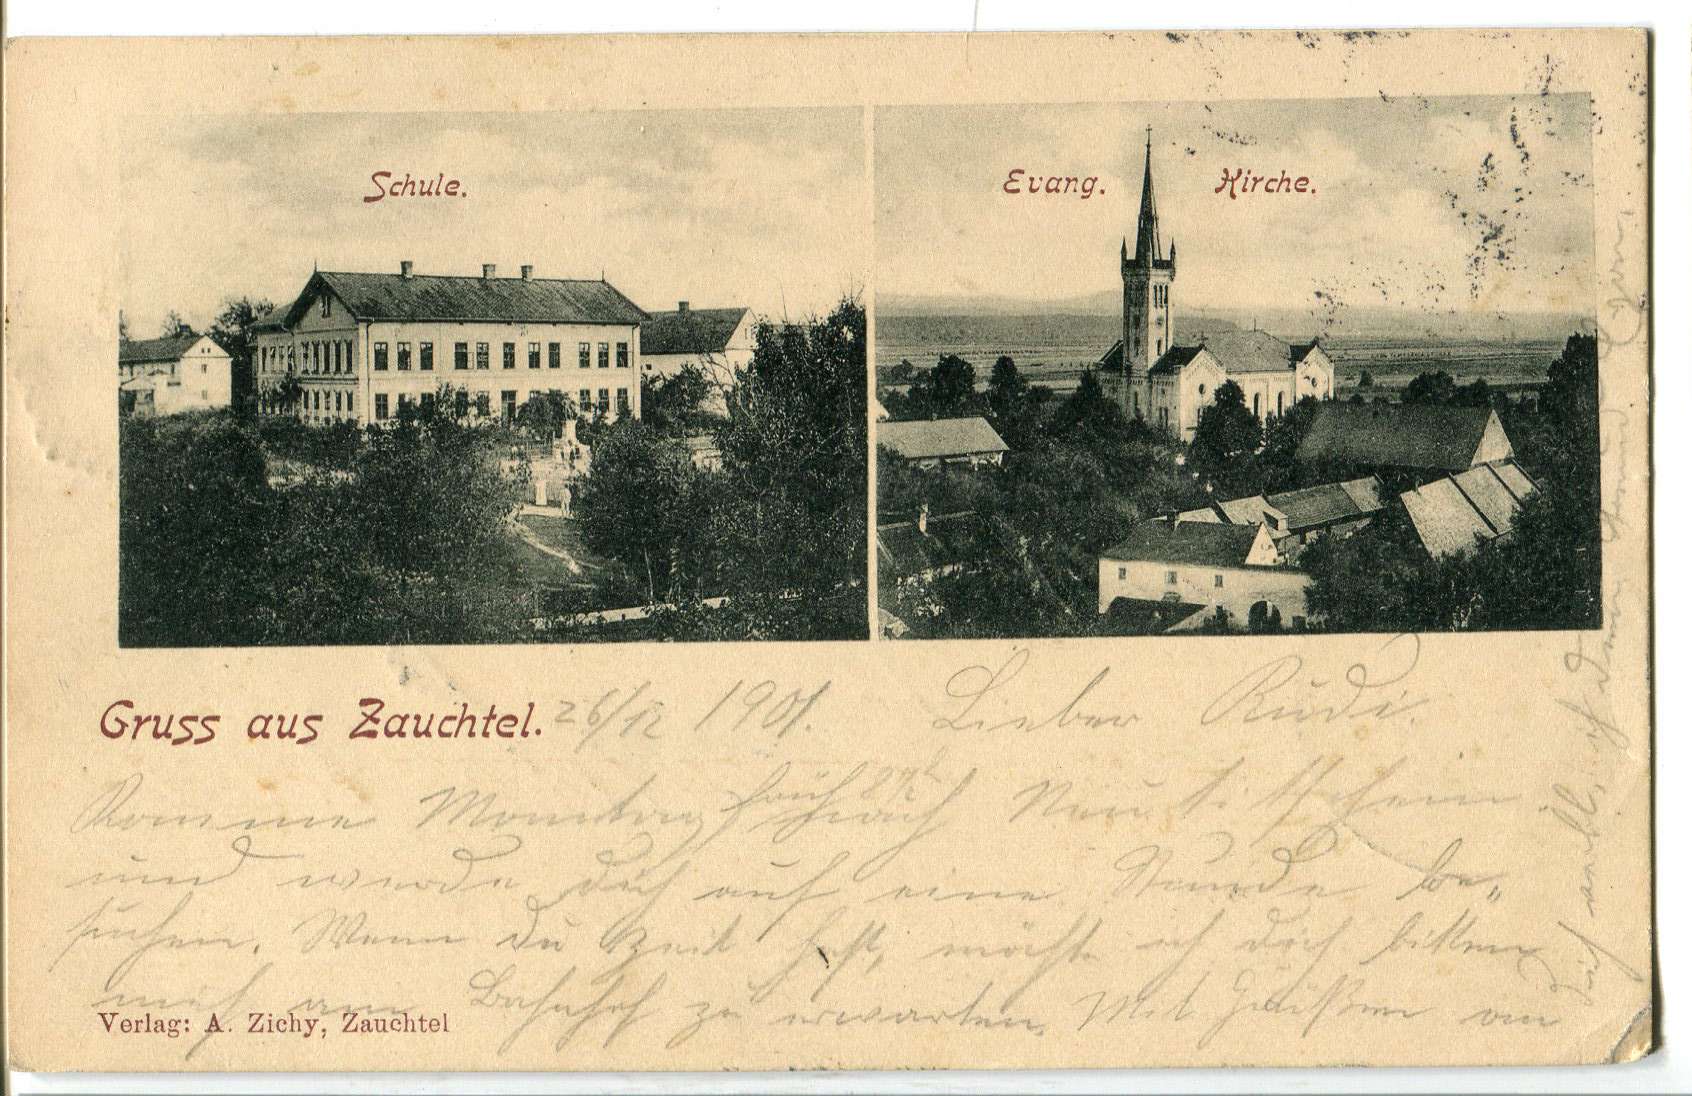 Schule.
Evang. Kirche.
Gruss aus Zauchtel. 26/12 1901. Lieber Rudi.
Komme Montag früh nach Neutitschein
und werde dich auf eine Stunde be-
suchen. Wenn du Zeit hast, möchte ich dich bitten
mich am Bahnhof zu erwarten. Mit Grüßen an
Verlag: A. Zichy, Zauchtel